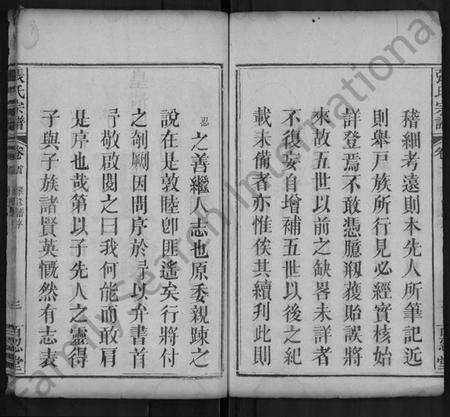 稽細考遠則本先人所筆記近
則舉戶族所行見必經實核始
詳登焉不敢憑臆剏獲貽誤將
來故五世以前之缺畧未詳者
不復妄自增補五世以後之紀
載未備者亦惟俟其續刋此則
忍
之善繼人志也原委親踈之
說在是敦睦卽匪遙矣行將付
之剞劂因問序於㝷以弁書首
㝷敬啟閱之曰我何能而敢肩
是序也哉第以子先人之靈得
子與子族諸賢英慨然有志表
張氏宗譜
卷首
三
百忍堂
familysearch International